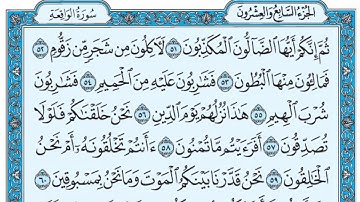 الجزء السابع والعشرون سورة الواقعة
ثُمَّ إِنَّكُمْ أَيُّهَا ٱلضَّآلُّونَ ٱلْمُكَذِّبُونَ ٥١ لَأَكِلُونَ مِن شَجَرٍ مِّن زَقُّومٍ ٥٢
فَمَالِـُٔونَ مِنْهَا ٱلْبُطُونَ ٥٣ فَشَٰرِبُونَ عَلَيْهِ مِنَ ٱلْحَمِيمِ ٥٤ فَشَٰرِبُونَ
شُرْبَ ٱلْهِيمِ ٥٥ هَٰذَا نُزُلُهُمْ يَوْمَ ٱلدِّينِ ٥٦ نَحْنُ خَلَقْنَٰكُمْ فَلَوْلَا
تُصَدِّقُونَ ٥٧ أَفَرَءَيْتُم مَّا تُمْنُونَ ٥٨ ءَأَنتُمْ تَخْلُقُونَهُۥٓ أَمْ نَحْنُ
ٱلْخَٰلِقُونَ ٥٩ نَحْنُ قَدَّرْنَا بَيْنَكُمُ ٱلْمَوْتَ وَمَا نَحْنُ بِمَسْبُوقِينَ ٦٠